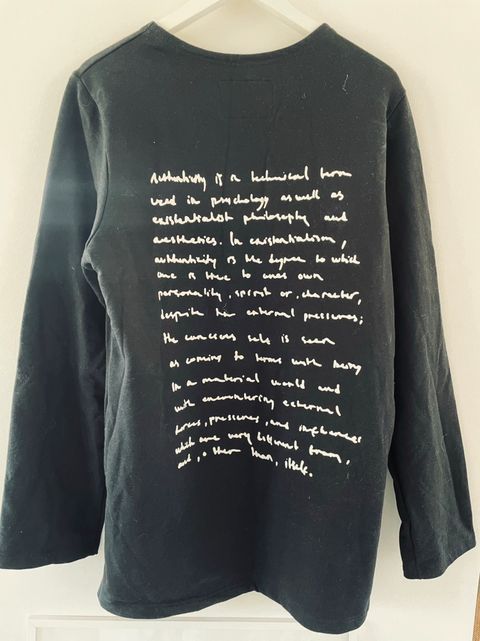 Authenticity is a technical term
used in psychology as well as
existentialist philosophy and
aesthetics. In existentialism,
authenticity is the degree to which
one is true to ones own
personality, spirit or, character,
despite the external pressures;
the conscious self is seen
as coming to terms with being
in a material world and
with encountering external
forces, pressures, and influences
which are very different from,
and, other than, itself.